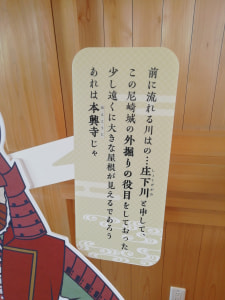 前に流れる川はの…庄下川と申して、
この尼崎城の外掘りの役目をしておった
少し遠くに大きな屋根が見えるであろう
あれは本興寺じゃ